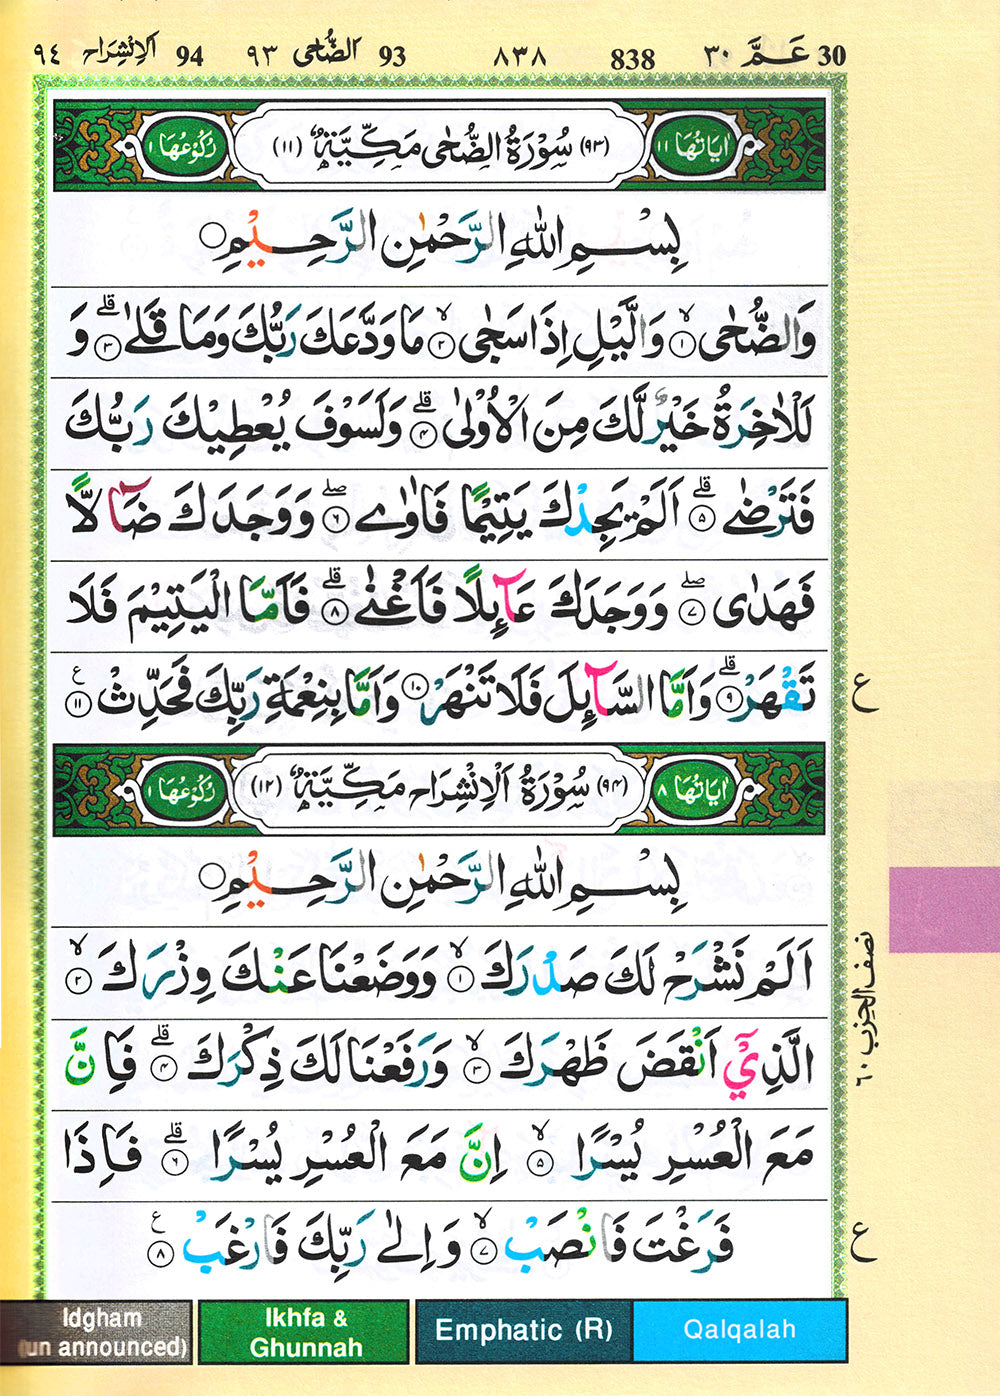 30 عَمَّ ٣٠ 838 ٨٣٨ 93 اَلضُّحٰى ٩٣ 94 اَلْاِنْشِرَاح ٩٤
اٰيَاتُهَا ١١ (٩٣) سُوْرَةُ الضُّحٰى مَكِّيَّةٌ (١١) رُكُوْعُهَا ١
بِسْمِ اللّٰهِ الرَّحْمٰنِ الرَّحِيْمِ
وَالضُّحٰى ۙ١ وَالَّيْلِ اِذَا سَجٰى ۙ٢ مَا وَدَّعَكَ رَبُّكَ وَمَا قَلٰى ۗ٣ وَ
لَلْاٰخِرَةُ خَيْرٌ لَّكَ مِنَ الْاُوْلٰى ۗ٤ وَلَسَوْفَ يُعْطِيْكَ رَبُّكَ
فَتَرْضٰى ۗ٥ اَلَمْ يَجِدْكَ يَتِيْمًا فَاٰوٰى ۖ٦ وَوَجَدَكَ ضَآلًّا
فَهَدٰى ۖ٧ وَوَجَدَكَ عَآئِلًا فَاَغْنٰى ۗ٨ فَاَمَّا الْيَتِيْمَ فَلَا
تَقْهَرْ ۗ٩ وَاَمَّا السَّآئِلَ فَلَا تَنْهَرْ ١٠ وَاَمَّا بِنِعْمَةِ رَبِّكَ فَحَدِّثْ ١١ ع
ع
اٰيَاتُهَا ٨ (٩٤) سُوْرَةُ اَلْاِنْشِرَاح مَكِّيَّةٌ (١٢) رُكُوْعُهَا ١
بِسْمِ اللّٰهِ الرَّحْمٰنِ الرَّحِيْمِ
اَلَمْ نَشْرَحْ لَكَ صَدْرَكَ ۙ١ وَوَضَعْنَا عَنْكَ وِزْرَكَ ۙ٢
الَّذِيْٓ اَنْقَضَ ظَهْرَكَ ۙ٣ وَرَفَعْنَا لَكَ ذِكْرَكَ ۗ٤ فَاِنَّ
نصف الحزب ٦٠
مَعَ الْعُسْرِ يُسْرًا ۙ٥ اِنَّ مَعَ الْعُسْرِ يُسْرًا ۗ٦ فَاِذَا
فَرَغْتَ فَانْصَبْ ۙ٧ وَاِلٰى رَبِّكَ فَارْغَبْ ٨ ع
ع
Idgham
(un announced)
Ikhfa &
Ghunnah
Emphatic (R)
Qalqalah